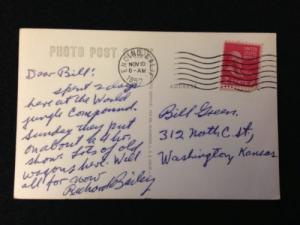 PHOTO POST
ENCINO, CALIF.
NOV 10
6-AM
1952
ADDRESS
Dear Bill:
spent 2 days
here at the World
jungle Compound.
Sunday they put
on about a hr.
show. Lots of old
wagons here. Well
all for now
Richard Bailey
Bill Green.
312 North C. st,
Washington, Kansas